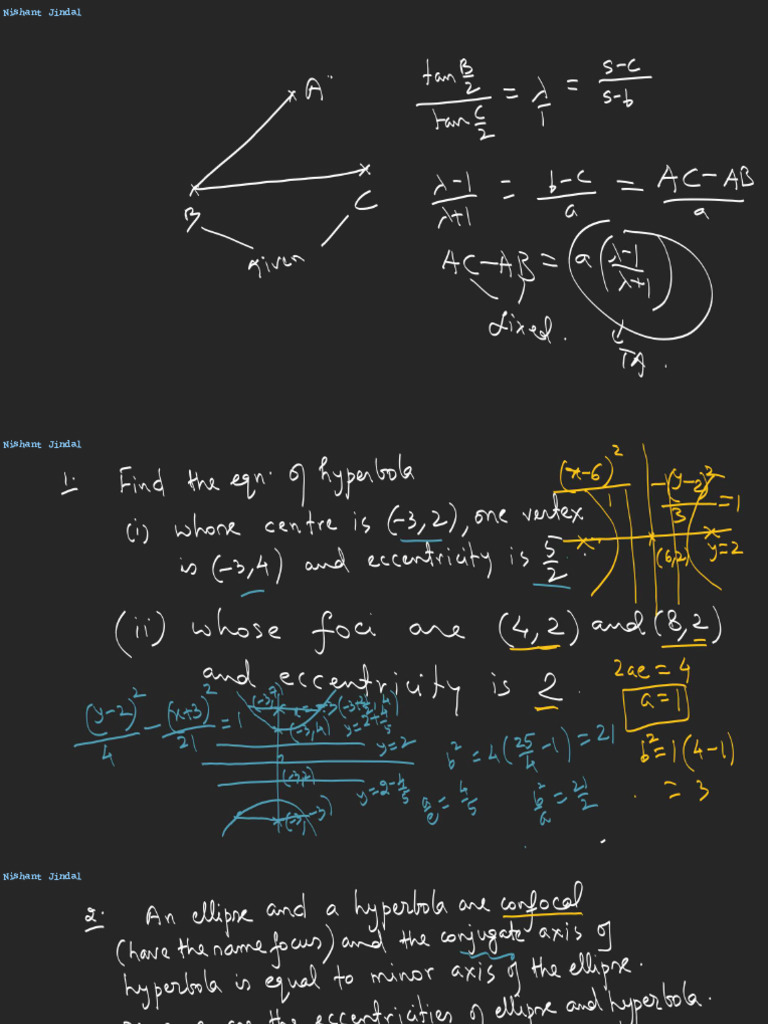 Nishant Jindal
A
B
C
given
tan B/2 / tan C/2 = λ/1 = s-c / s-b
λ-1 / λ+1 = b-c / a = AC-AB / a
AC-AB = a (λ-1 / λ+1)
fixed.
TA.
Nishant Jindal
1. Find the eqn. of hyperbola
(i) whose centre is (-3,2), one vertex
is (-3,4) and eccentricity is 5/2.
(x-6)²/1 - (y-2)²/3 = 1
y=2
(6,2)
(ii) whose foci are (4,2) and (8,2)
and eccentricity is 2.
2ae = 4
a=1
b² = 1(4-1)
= 3
(y-2)²/4 - (x+3)²/21 = 1
(-3,7)
(-3,4)
y=2+4/5
y=2
(-3,2)
y=2-4/5
(-3,-3)
b² = 4(25/4 - 1) = 21
a/e = 4/5
b²/a = 21/2
Nishant Jindal
2. An ellipse and a hyperbola are confocal
(have the same focus) and the conjugate axis of
hyperbola is equal to minor axis of the ellipse.
are the eccentricities of ellipse and hyperbola.